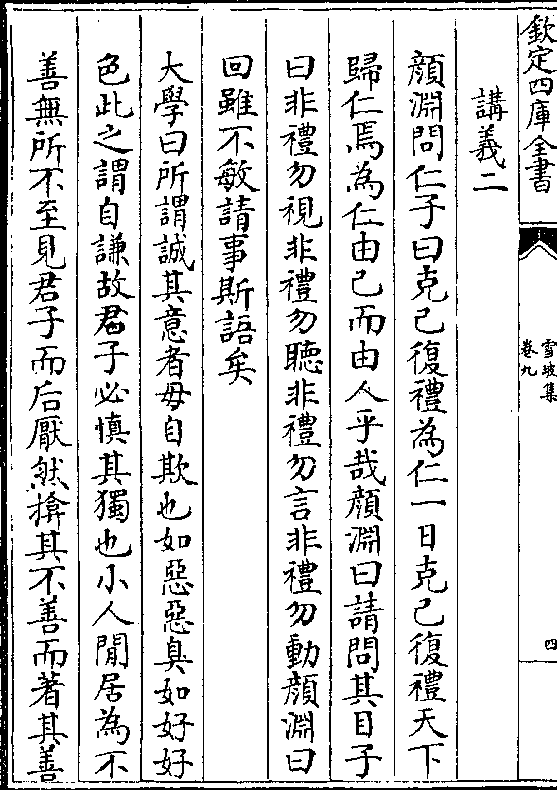 欽定四庫全書
雪坡集
卷九
四
講義二
顔淵問仁子曰克己復禮為仁一日克己復禮天下
歸仁焉為仁由己而由人乎哉顔淵曰請問其目子
曰非禮勿視非禮勿聽非禮勿言非禮勿動顔淵曰
回雖不敏請事斯語矣
大學曰所謂誠其意者毋自欺也如惡惡臭如好好
色此之謂自謙故君子必慎其獨也小人閒居為不
善無所不至見君子而后厭然揜其不善而著其善